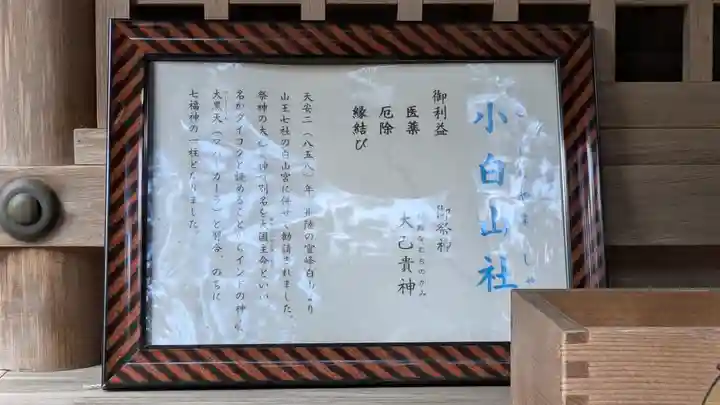 小白山社
御祭神
大己貴神
おおなむちのかみ
御利益
医薬
厄除
縁結び
天安二(八五八)年
山王七社の白山宮に併せて勧請されました。
祭神の大己貴神は別名を大国主命といい
名がダイコクと読めることからインドの神様
大黒天(マハーカーラ)と習合、のちに
七福神の一柱となりました。